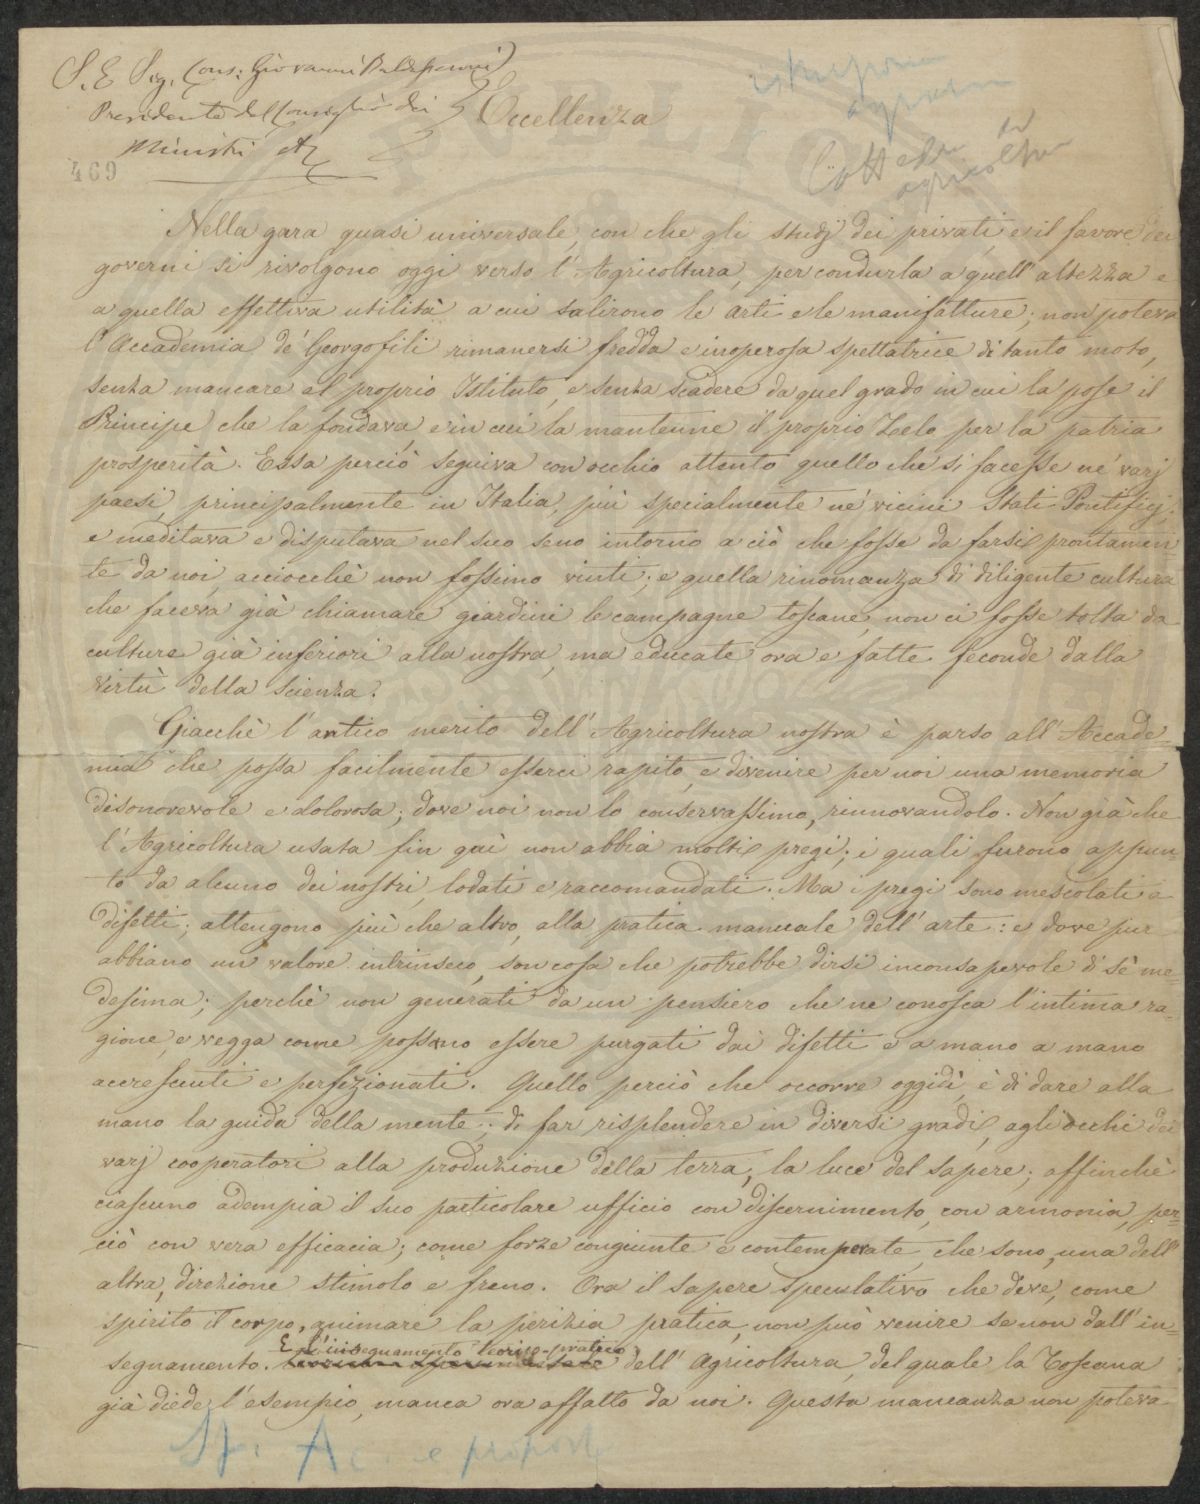 S. E. Sig. Cons: Giovanni Baldasseroni
Presidente del Consiglio dei
Ministri
Eccellenza
istruzione
agraria
Cattedra di
agricoltura
469
Nella gara quasi universale, con che gli studj dei privati, e il favore dei
governi si rivolgono oggi verso l'Agricoltura, per condurla a quell'altezza e
a quella effettiva utilità a cui salirono le arti e le manifatture; non poteva
l'Accademia de' Georgofili rimanersi fredda e inoperosa spettatrice di tanto moto,
senza mancare al proprio Istituto, e senza scadere da quel grado in cui la pose il
Principe che la fondava, e in cui la mantenne il proprio Zelo per la patria
prosperità. Essa perciò seguiva con occhio attento quello che si facesse ne' varj
paesi, principalmente in Italia, più specialmente ne' vicini Stati Pontificj;
e meditava e disputava nel suo seno intorno a ciò che fosse da farsi prontamen=
te da noi, acciocchè non fossimo vinti; e quella rinomanza di diligente cultura
che faceva già chiamare giardini le campagne toscane, non ci fosse tolta da
culture già inferiori alla nostra, ma educate ora e fatte feconde dalla
virtù della scienza.
Giacchè l'antico merito dell'Agricoltura nostra è parso all'Accade=
mia che possa facilmente esserci rapito, e divenire per noi una memoria
disonorevole e dolorosa; dove noi non lo conservassimo, rinnovandolo. Non già che
l'Agricoltura usata fin quì non abbia molti pregi; i quali furono appun=
to da alcuno dei nostri, lodati e raccomandati. Ma i pregi sono mescolati a
difetti; attengono più che altro, alla pratica manuale dell'arte: e dove pur
abbiano un valore intrinseco, son cosa che potrebbe dirsi inconsapevole di sè me=
desima; perchè non generati da un pensiero che ne conosca l'intima ra=
gione, e vegga come possano essere purgati dai difetti e a mano a mano
accresciuti e perfezionati. Quello perciò che occorre oggidì, è di dare alla
mano la guida della mente; di far risplendere in diversi gradi, agli occhi dei
varj cooperatori alla produzione della terra, la luce del sapere; affinchè
ciascuno adempia il suo particolare ufficio con discernimento, con armonia, per=
ciò con vera efficacia; come forze congiunte e contemperate, che sono, una dell'
altra, direzione stimolo e freno. Ora il sapere speculativo che deve, come
spirito il corpo, animare la perizia pratica, non può venire se non dall'in=
segnamento. E l'insegnamento teorico-pratico dell'Agricoltura, del quale la Toscana
già diede l'esempio, manca ora affatto da noi. Questa mancanza non poteva
Ac. e proposte